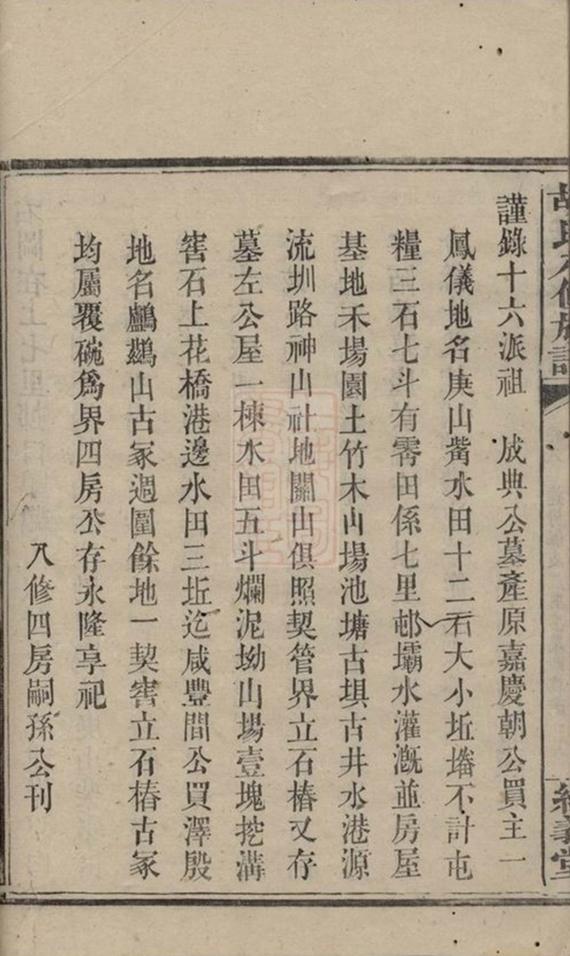 胡氏八修族譜
經義堂
謹錄十六派祖　成典公墓產原嘉慶朝公買主一
鳳儀地名庚山觜水田十二石大小坵墦不計屯
糧三石七斗有零田係七里邨壩水灌溉並房屋
基地禾場園土竹木山場池塘古埧古井水港源
流圳路神山社地關山俱照契管界立石樁又存
墓左公屋一棟水田五斗爛泥坳山場壹塊挖溝
窖石上花橋港邊水田三坵迄咸豐間公買澤殷
地名鸕鷀山古冢週圍餘地一契窖立石樁古冢
均屬覆碗為界四房公存永隆享祀
八修四房嗣孫公刊